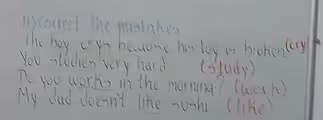 II) correct the mistakes
The boy crys because his toy is broken (cry)
You studies very hard (study)
Do you works in the morning? (work)
My dad doesn't like sushi (like)